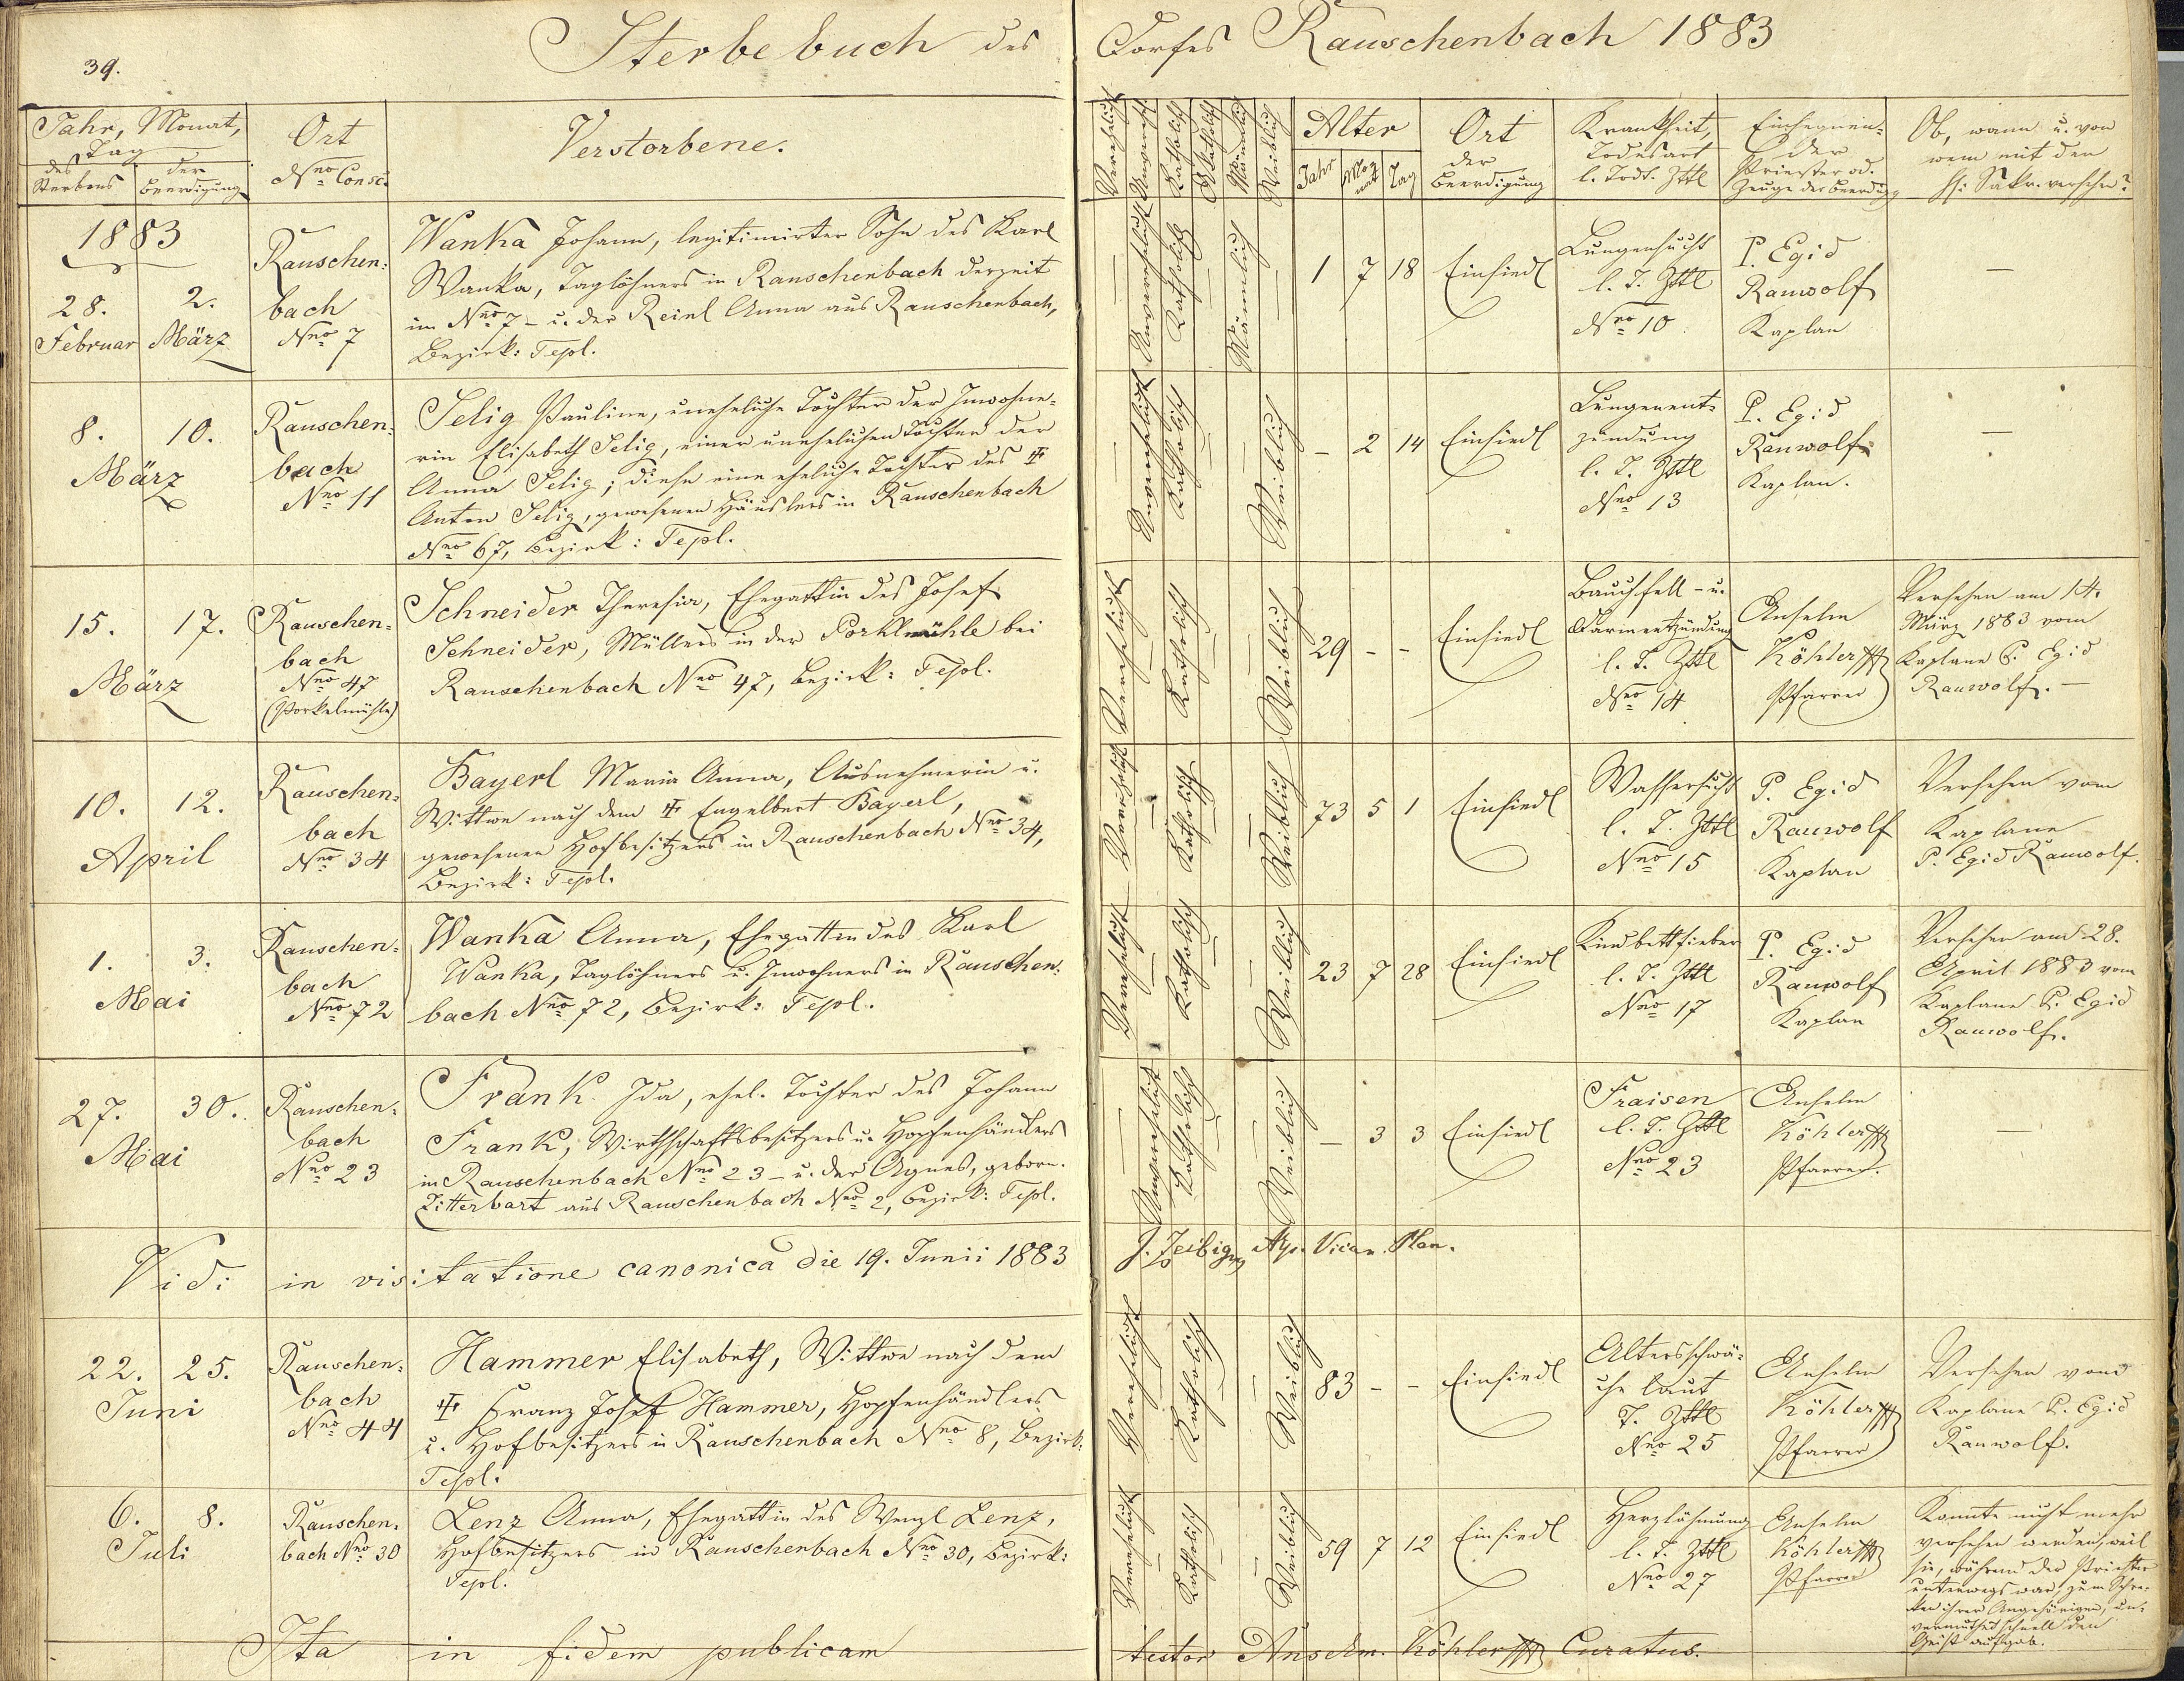 39.
Sterbebuch des Dorfes Rauschenbach 1883
Jahr, Monat,
Tag
des Sterbens
der Beerdigung
Ort
Nro Consc.
Verstorbene.
Verehelicht
Unverehelicht
Katholisch
Akatholisch
Männlich
Weiblich
Alter
Jahr
Monat
Tag
Ort
der
Beerdigung
Krankheit,
Todesart
l. Todt. Zttl
Einsegnen-
der
Priester od.
Zeuge der Beerdigg
Ob, wann u. von
wem mit den
hl: Sakr. versehen?
1883
28.
Februar
2.
März
Rauschen-
bach
Nro 7
Wanka Johann, legitimirter Sohn des Karl
Wanka, Taglöhners in Rauschenbach derzeit
im Nro 7 - u. der Reinl Anna aus Rauschenbach,
Bezirk: Tepl.
Unverehelicht
Katholisch
Männlich
1 7 18
Einsiedl
Lungensucht
l. T. Zttl
Nro 10.
P. Egid
Rauwolf
Kaplan
—
8. 10.
März
Rauschen-
bach
Nro 11
Selig Pauline, uneheliche Tochter der Inwohne-
rin Elisabeth Selig, einer unehelichen Tochter der
Anna Selig; diese eine eheliche Tochter des ☩
Anton Selig, gewesenen Häuslers in Rauschenbach
Nro 67, Bezirk: Tepl.
Unverehelicht
Katholisch
Weiblich
- 2 14
Einsiedl
Lungenent-
zündung
l. T. Zttl
Nro 13
P. Egid
Rauwolf
Kaplan.
—
15. 17.
März
Rauschen-
bach
Nro 47
(Porkelmühle)
Schneider Theresia, Ehegattin des Josef
Schneider, Müllers in der Porklmühle bei
Rauschenbach Nro 47, Bezirk: Tepl.
Verehelicht
Katholisch
Weiblich
29 - -
Einsiedl
Bauchfell- u.
Darmentzündung
l. T. Zttl
Nro 14
Anselm
Köhler
Pfarrer
Versehen am 14.
März 1883 vom
Kaplane P. Egid
Rauwolf. —
10. 12.
April
Rauschen-
bach
Nro 34
Bayerl Maria Anna, Ausnehmerin u.
Wittwe nach dem ☩ Engelbert Bayerl,
gewesenen Hofbesitzers in Rauschenbach Nro 34,
Bezirk: Tepl.
Verehelicht
Katholisch
Weiblich
73 5 1
Einsiedl
Wassersucht
l. T. Zttl
Nro 15
P. Egid
Rauwolf
Kaplan
Versehen vom
Kaplane
P. Egid Rauwolf.
1. 3.
Mai
Rauschen-
bach
Nro 72
Wanka Anna, Ehegattin des Karl
Wanka, Taglöhners u. Inwohners in Rauschen-
bach Nro 72, Bezirk: Tepl.
Verehelicht
Katholisch
Weiblich
23 7 28
Einsiedl
Kindbettfieber
l. T. Zttl
Nro 17
P. Egid
Rauwolf
Kaplan
Versehen am 28.
April 1883 vom
Kaplane P. Egid
Rauwolf.
27. 30.
Mai
Rauschen-
bach
Nro 23
Frank Ida, ehel. Tochter des Johann
Frank, Wirthschaftsbesitzers u. Hopfenhändlers
in Rauschenbach Nro 23 - u. der Agnes, geborn.
Zitterbart aus Rauschenbach Nro 2, Bezirk: Tepl.
Unverehelicht
Katholisch
Weiblich
- 3 3
Einsiedl
Fraisen
l. T. Zttl
Nro 23
Anselm
Köhler
Pfarrer.
—
Vidi in visitatione canonica die 19. Junii 1883
J. Zeibig Vicar. Plan.
22. 25.
Juni
Rauschen-
bach
Nro 44
Hammer Elisabeth, Wittwe nach dem
☩ Franz Josef Hammer, Hopfenhändlers
u. Hofbesitzers in Rauschenbach Nro 8, Bezirk:
Tepl.
Verehelicht
Katholisch
Weiblich
83 - -
Einsiedl
Altersschwä-
che laut
T. Zttl
Nro 25
Anselm
Köhler
Pfarrer
Versehen vom
Kaplane P. Egid
Rauwolf.
6. 8.
Juli
Rauschen-
bach Nro 30
Lenz Anna, Ehegattin des Wenzl Lenz,
Hofbesitzers in Rauschenbach Nro 30, Bezirk:
Tepl.
Verehelicht
Katholisch
Weiblich
59 7 12
Einsiedl
Herzlähmung
l. T. Zttl
Nro 27
Anselm
Köhler
Pfarrer
Konnte nicht mehr
versehen werden, weil
sie, während der Priester
unterwegs war, zum Schre-
cken ihrer Angehörigen, un-
vermuthet schnell den
Geist aufgab.
Ita in fidem publicam testor Anselm. Köhler Curatus.